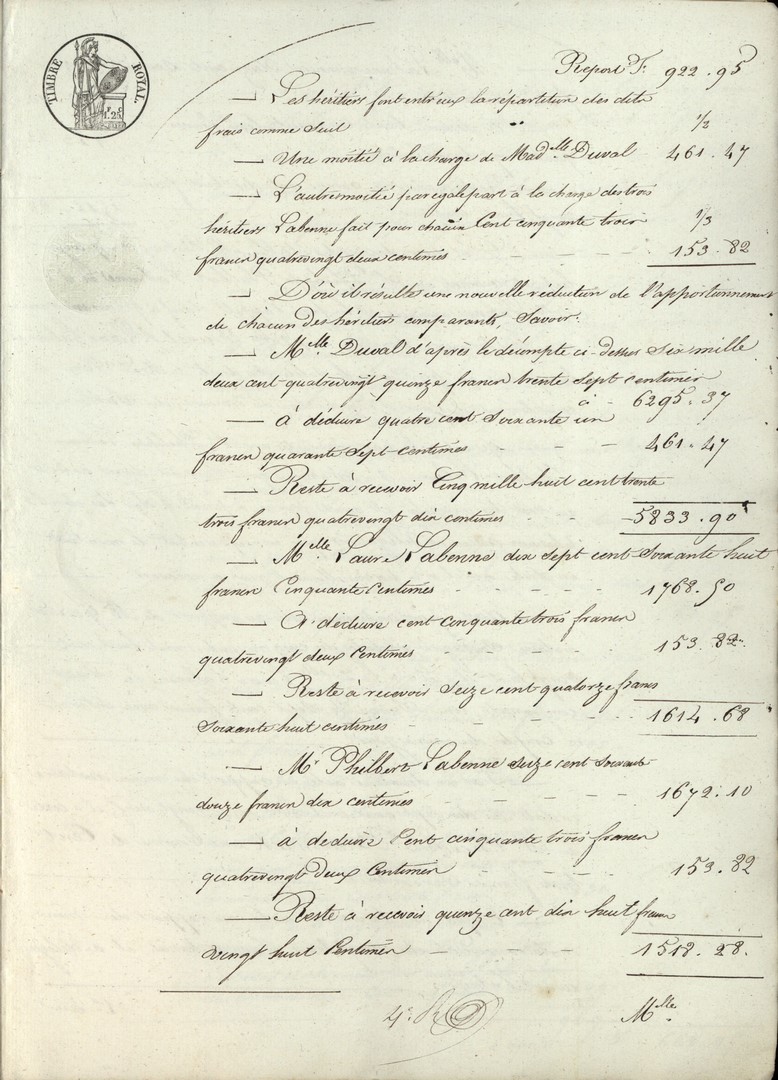 TIMBRE ROYAL.
1 F. 25 C.
Report F. 922.95
— Les héritiers font entr'eux la répartition des dits
frais comme suit 1/2
— Une moitié à la charge de Mad.lle Duval 461.47
— L'autre moitié par égale part à la charge des trois
héritiers Labenne fait pour chacun Cent cinquante trois 1/3
francs quatrevingt deux centimes 153.82
— D'où il résulte une nouvelle réduction de l'apportionnement
de chacun des héritiers comparants, Savoir:
— M.lle Duval d'après le décompte ci-dessus Six mille
deux cent quatrevingt quinze francs trente Sept centimes
ci - 6295.37
— à déduire quatre cent Soixante un
francs quarante Sept centimes 461.47
— Reste à recevoir Cinq mille huit cent trente
trois francs quatrevingt dix centimes 5833.90
— M.elle Laure Labenne dix Sept cent Soixante huit
francs Cinquante Centimes 1768.50
— A déduire cent cinquante trois francs
quatrevingt deux Centimes 153.82
— Reste à recevoir Seize cent quatorze francs
Soixante huit centimes 1614.68
— Mr Philbert Labenne Seize cent Soixante
douze francs dix centimes 1672.10
— à déduire Cent cinquante trois francs
quatrevingt deux Centimes 153.82
— Reste à recevoir quinze cent dix huit francs
vingt huit Centimes 1518.28.
4e. R
M.elle